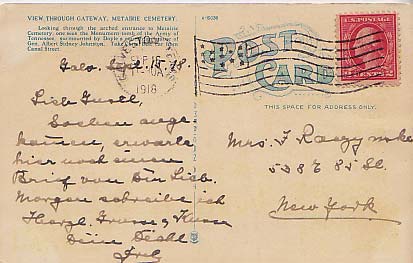 VIEW THROUGH GATEWAY, METAIRIE CEMETERY.
Looking through the arched entrance to Metairie
Cemetery, one sees the Monument-tomb of the Army of
Tennessee, surmounted by Doyle's
Gen. Albert Sidney Johnston. Take
Canal Street.
A-6038
POST
CARD
THIS SPACE FOR ADDRESS ONLY.
U.S. POSTAGE
2 CENTS 2
1918
18.
Lieb
Soeben ange
kommen, erwarte
hier noch einen
Brief von Dir Lieb.
Morgen schreibe ich
Herzl. Grüsse & Küsse
Dein
Mrs. F
538 E 85 St.
New York